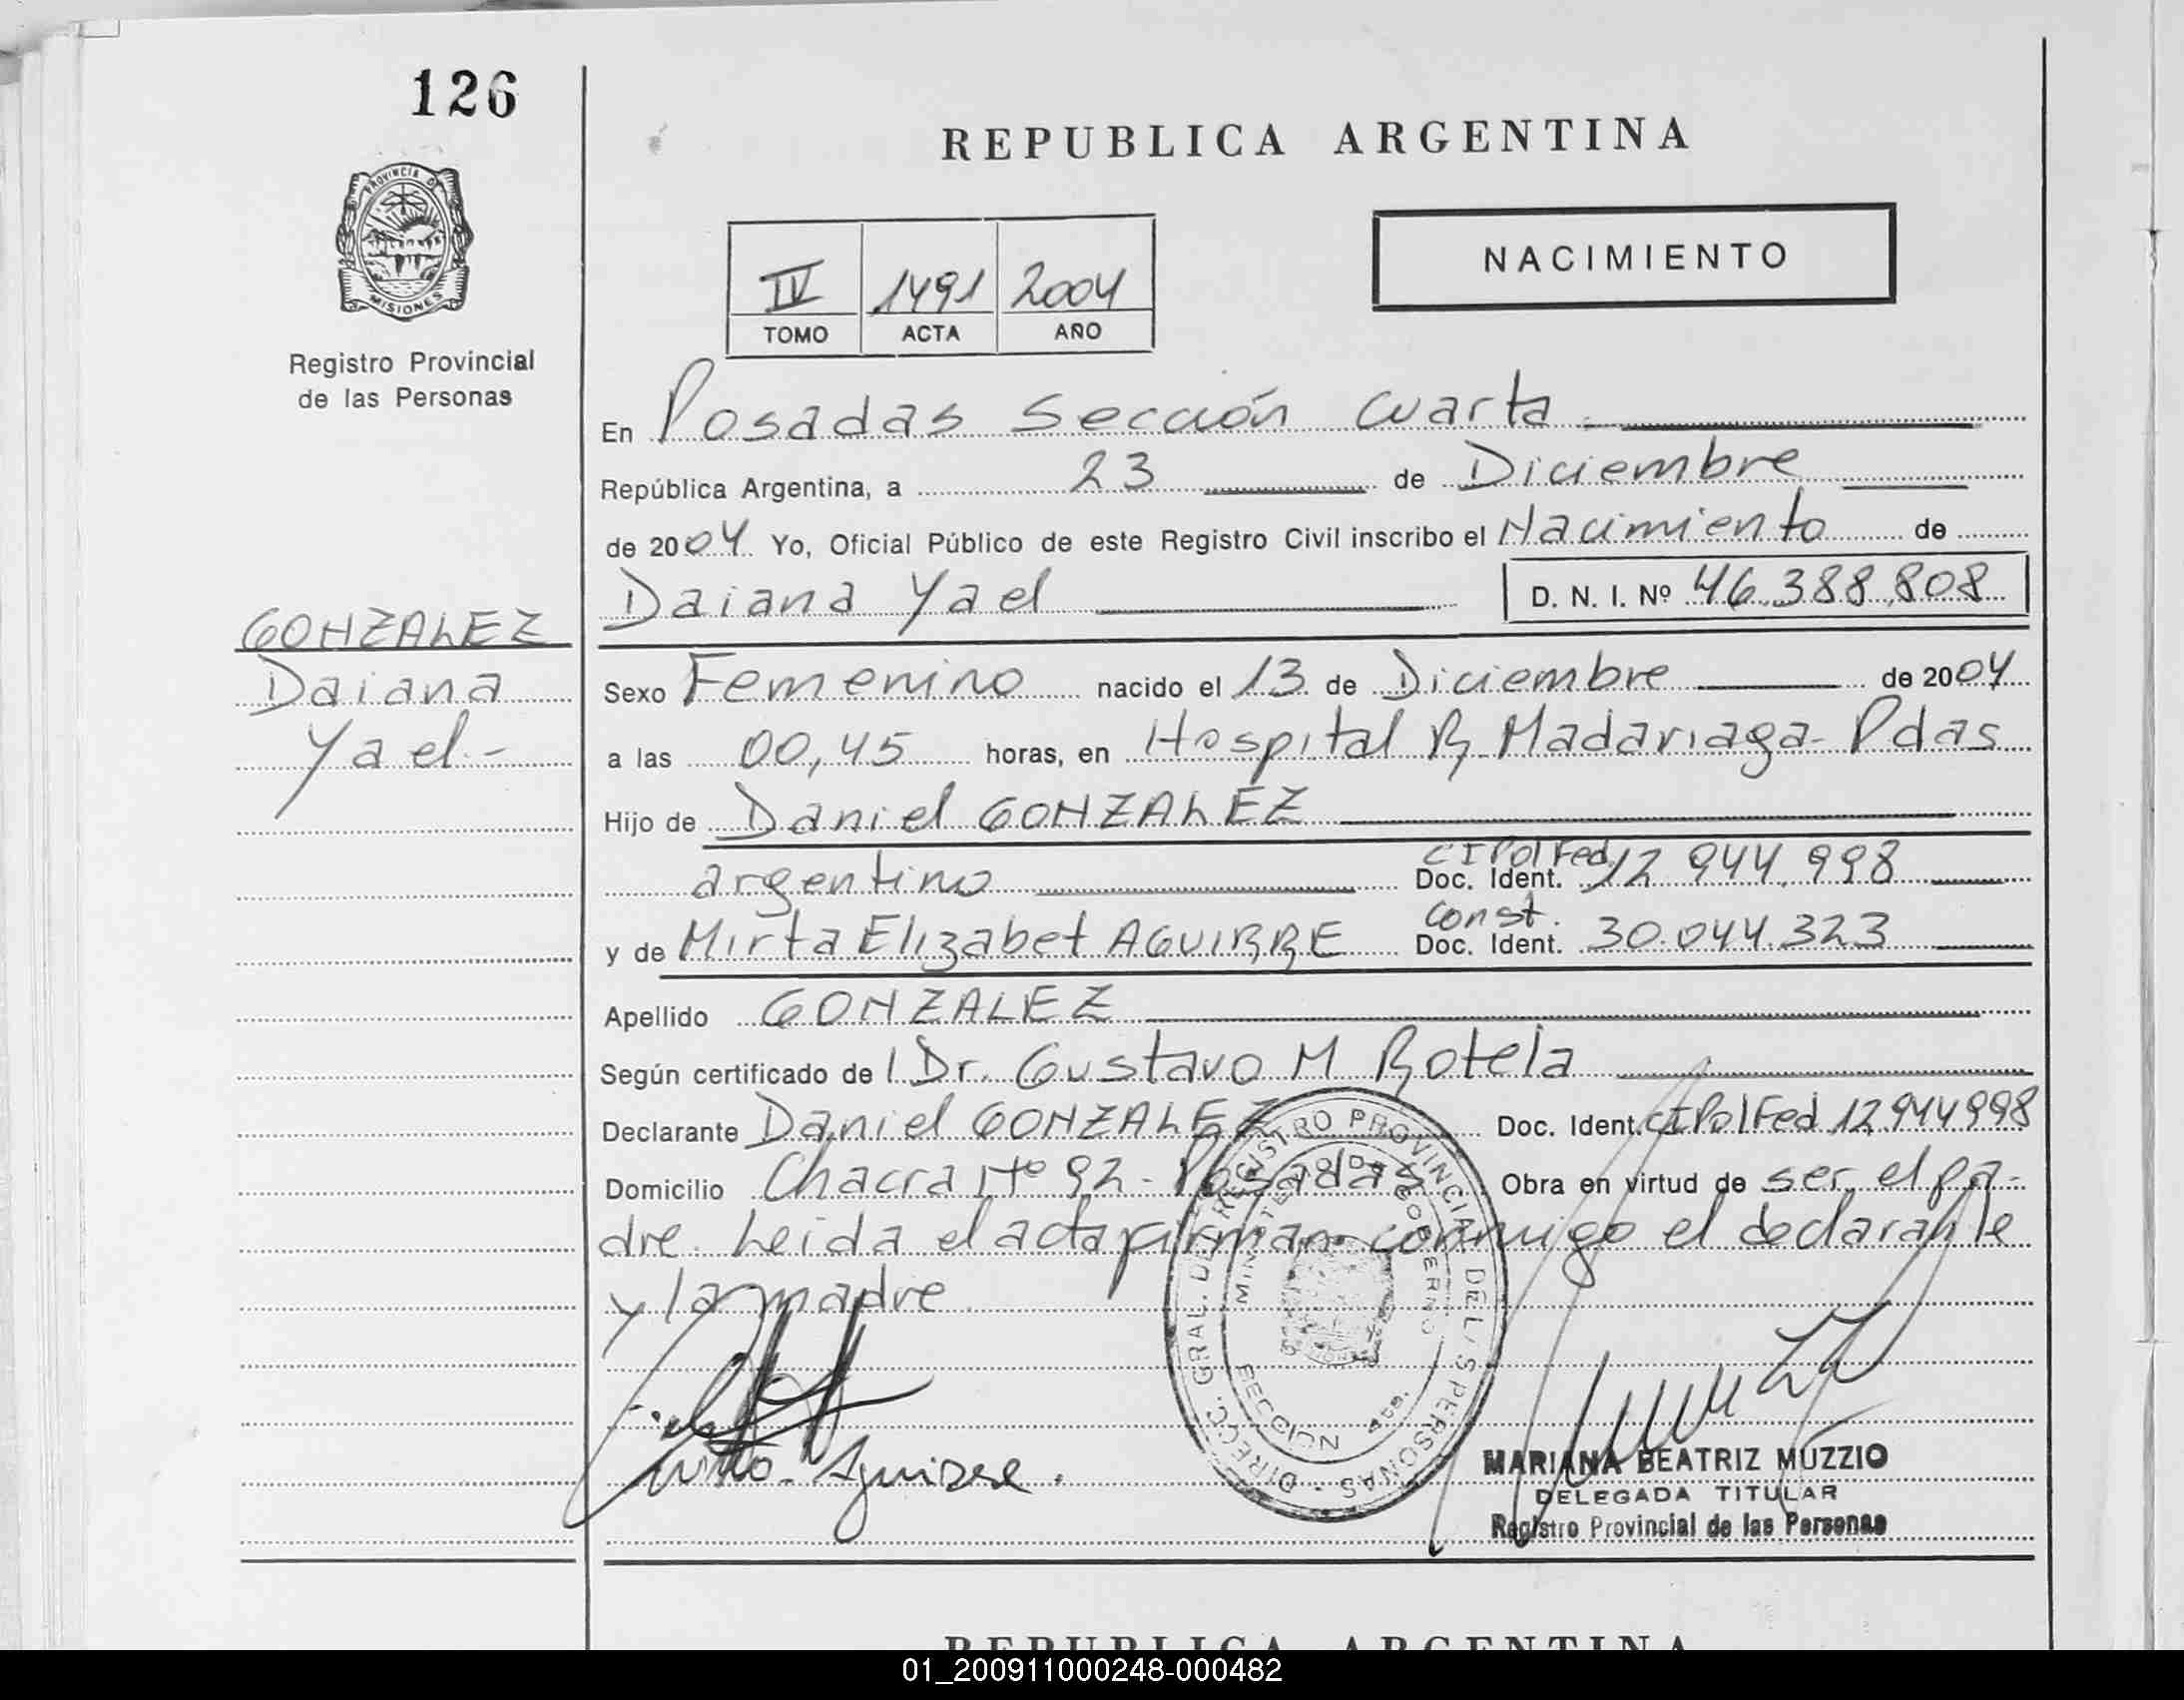 126
REPUBLICA ARGENTINA
PROVINCIA DE
MISIONES
Registro Provincial
de las Personas
NACIMIENTO
IV 1491 2004
TOMO ACTA AÑO
En Posadas Sección Cuarta.
República Argentina, a 23 de Diciembre
de 2004 Yo, Oficial Público de este Registro Civil inscribo el Nacimiento de
Daiana Yael D. N. I. Nº 46.388.808
GONZALEZ
Daiana
Yael.-
Sexo Femenino nacido el 13 de Diciembre de 2004
a las 00,45 horas, en Hospital R. Madariaga- Pdas
Hijo de Daniel GONZALEZ
argentino CI Pol Fed. Doc. Ident. 12 944.998
y de Mirta Elizabet AGUIRRE Const. Doc. Ident. 30.044.323
Apellido GONZALEZ
Según certificado de l Dr. Gustavo M Rotela
Declarante Daniel GONZALEZ Doc. Ident. CI Pol Fed 12944998
Domicilio Chacra Nº 92 - Posadas Obra en virtud de ser el pa-
dre. Leida el acta firman conmigo el declarante
y la madre.
DIRECC. GRAL. DEL REGISTRO PROVINCIAL DE LAS PERSONAS
MINISTERIO DE GOBIERNO
SECCION 4ta.
Aguirre.
MARIANA BEATRIZ MUZZIO
DELEGADA TITULAR
Registro Provincial de las Personas
REPUBLICA ARGENTINA
01_200911000248-000482